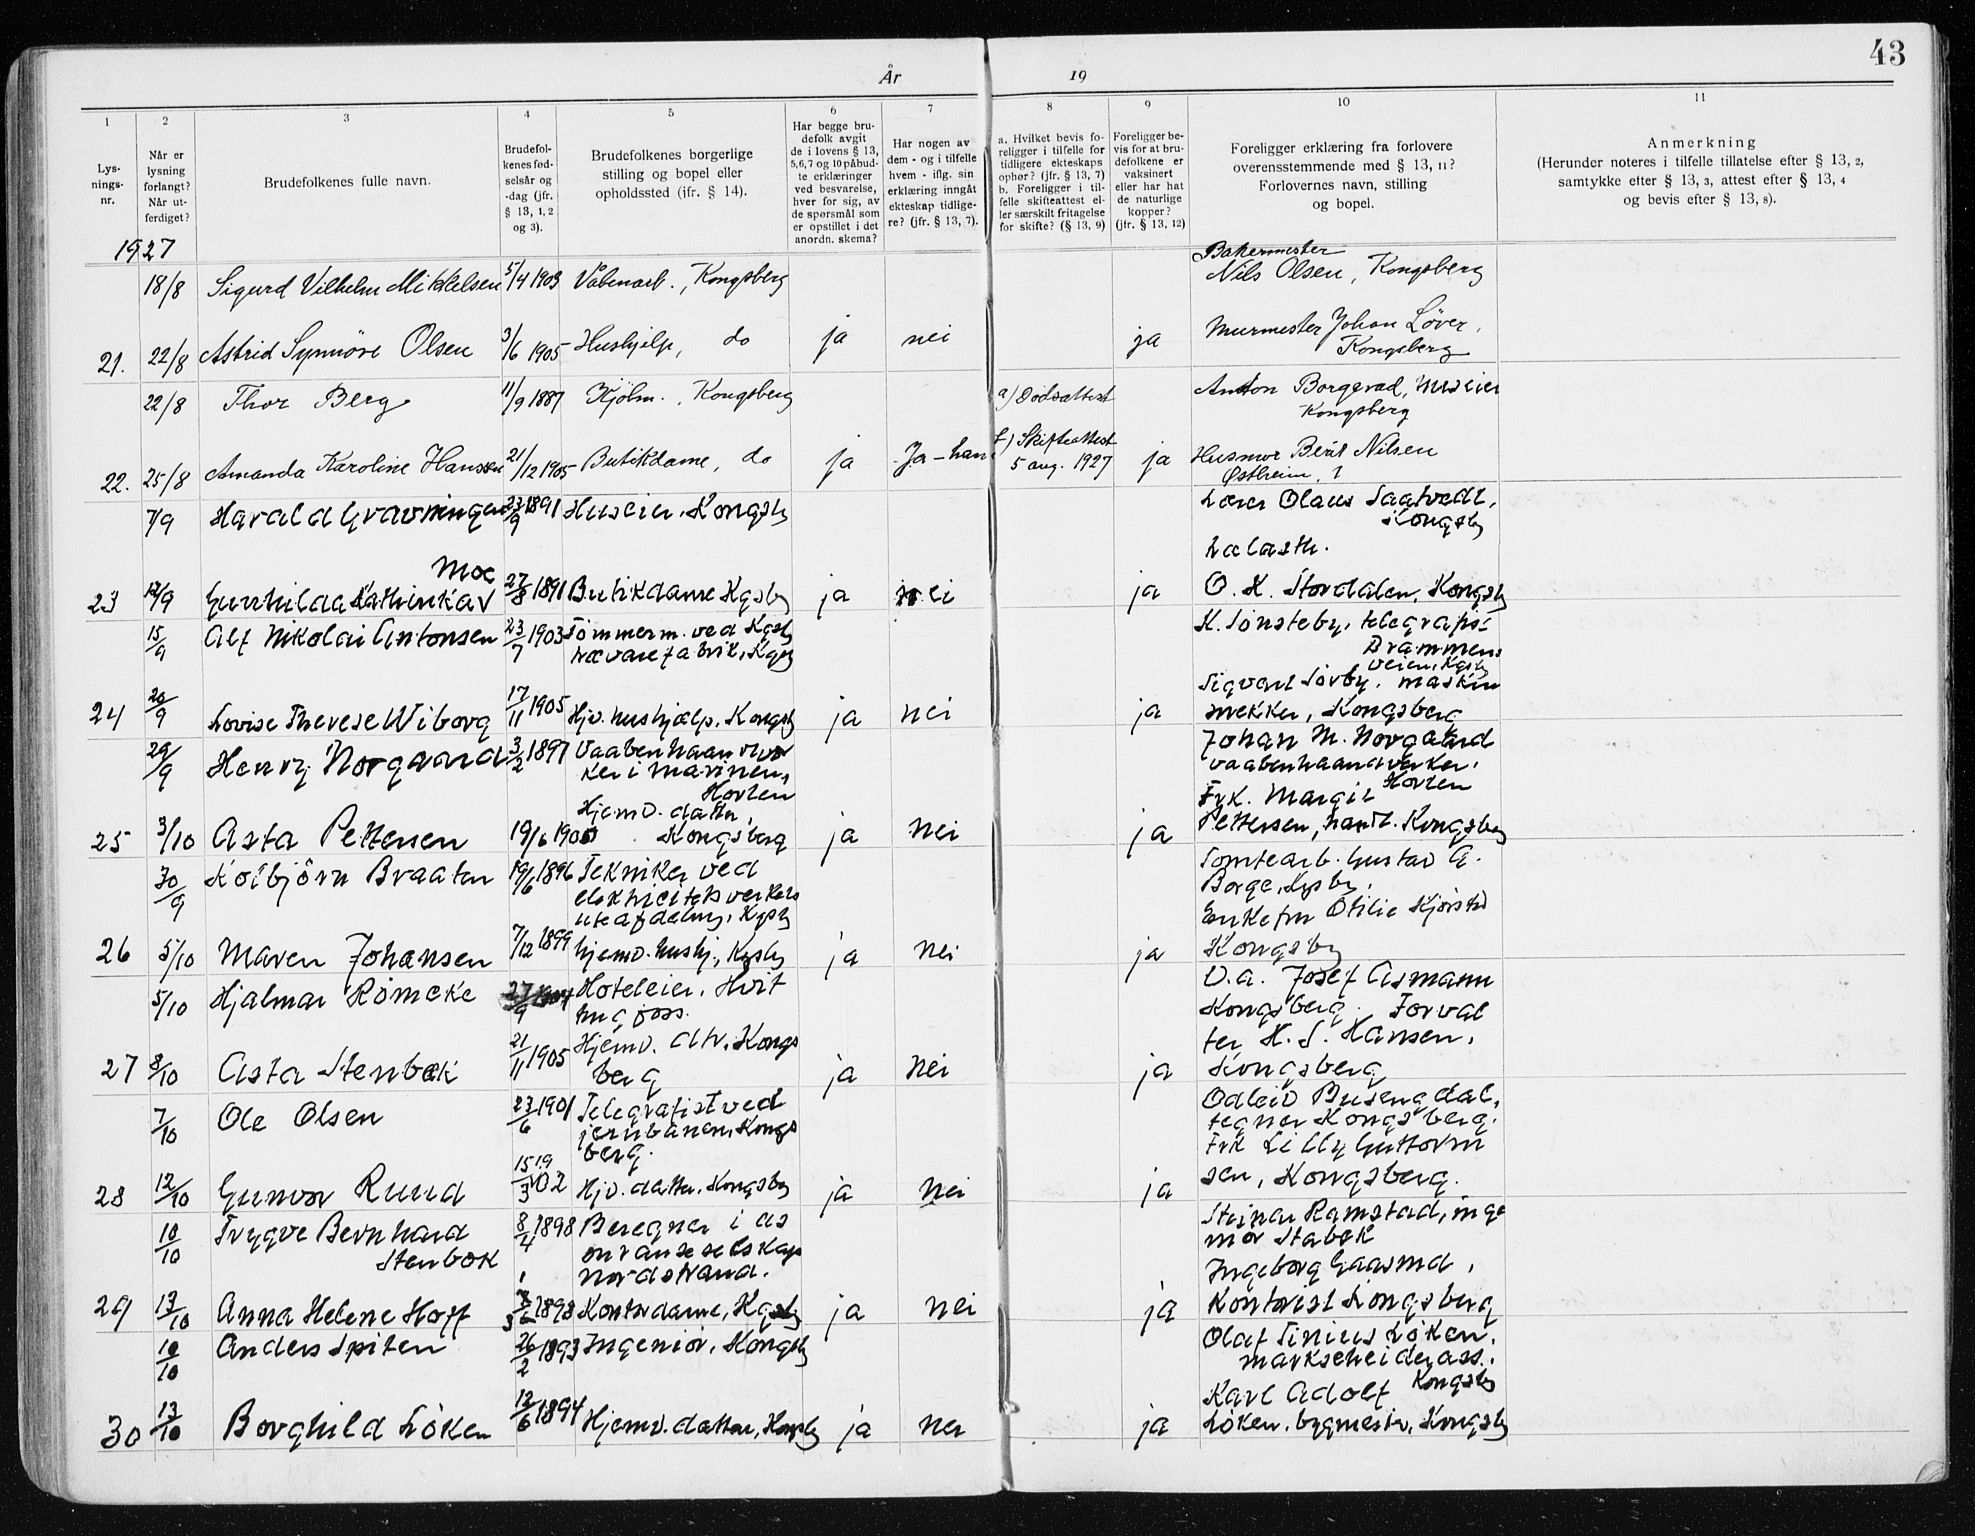 43
År 19
1 2 3 4 5 6 7 8 9 10 11
Lys-
nings-
nr.
Når er
lysning
forlangt?
Når ut-
ferdiget?
Brudefolkenes fulle navn.
Brudefol-
kenes fød-
selsår og
-dag (jfr.
§ 13, 1, 2
og 3).
Brudefolkenes borgerlige
stilling og bopel eller
opholdssted (jfr. § 14).
Har begge bru-
defolk avgit
de i lovens § 13,
5,6,7 og 10 påbud-
te erklæringer
ved besvarelse,
hver for sig, av
de spørsmål som
er opstillet i det
anordn. skema?
Har nogen av
dem - og i tilfelle
hvem - iflg. sin
erklæring inngått
ekteskap tidlige-
re? (jfr. § 13, 7).
a. Hvilket bevis fo-
religger i tilfelle for
tidligere ekteskaps
ophør? (jfr. § 13, 7)
b. Foreligger i til-
felle skifteattest el-
ler særskilt fritagelse
for skifte? (§ 13, 9)
Foreligger be-
vis for at bru-
defolkene er
vaksinert
eller har hat
de naturlige
kopper?
(jfr. § 13, 12)
Foreligger erklæring fra forlovere
overensstemmende med § 13, 11?
Forlovernes navn, stilling
og bopel.
Anmerkning
(Herunder noteres i tilfelle tillatelse efter § 13, 2,
samtykke efter § 13, 3, attest efter § 13, 4
og bevis efter § 13, 8).
1927
Bakermester
18/8 Sigurd Vilhelm Mikkelsen 5/4 1903 Våbenarb., Kongsberg Nils Olsen, Kongsberg
21. 22/8 Astrid Synnöve Olsen 3/6 1905 Hushjelp, do ja nei ja Murmester Johan Löver,
Kongsberg
22/8 Thor Berg 11/9 1887 Kjölm., Kongsberg a) Dødsattest Anton Borgerad, Huseier
Kongsberg
22. 25/8 Amanda Karoline Hanssen 21/12 1905 Butikdame, do ja Ja - han b) Skifteattest
5 aug. 1927 ja Husmor Berit Nilsen
Østheim,
7/9 Harald Gravningen 23/9 1891 Huseier, Kongsbg Lærer Olaus Saatvedt,
Kongsbg
Moe
23 12/9 Gunhilda Kathinka v 27/8 1891 Butikdame Kgsbg ja nei ja O. K. Stordalen, Kongsbg
15/9 Alf Nikolai Antonsen 23/7 1903 Tömmerm. ved Kgsbg
trævarefabrik, Kgsbg K. Tönsteby, telegrafist
Drammens
veien, Kgsbg
24 20/9 Lovise Therese Wiborg 17/11 1905 Hjv. hushjælp, Kongsbg ja nei ja Sigvart Sörby, maskin
snekker, Kongsberg
29/9 Henry Norgaard 3/2 1897 Vaabenhaandver
ker i marinen,
Horten Johan M. Norgaard
vaabenhaandverker,
Horten
25 3/10 Asta Pettersen 19/6 1900 Hjemv. datter,
Kongsberg ja nei ja Frk. Margit
Pettersen, handl. Kongsberg
30/9 Kolbjörn Braaten 19/6 1896 Tekniker ved
elektricitetsverkets
uteafdeling, Kgsbg Tomtearb. Gustav A.
Borge, Kgsbg.
26 5/10 Maren Johansen 7/12 1899 hjemv. hushj., Kgsbg ja nei ja Enkefru Otilie Kjörstad
Kongsbg
5/10 Hjalmar Römcke 27/9 Hoteleier, Hvit
tingfoss. O. a. Josef Asmann
Kongsberg. Forval
27 8/10 Asta Stenbæk 21/11 1905 Hjemv. dtr., Kongs
berg ja nei ja ter H. S. Hansen,
Kongsberg
7/10 Ole Olsen 23/6 1901 Telegrafist ved
jernbanen, Kongs
berg. Odleiv Busengdal,
tegner Kongsberg.
28 12/10 Gunvor Ruud 15/3 1902 Hjv. datter, Kongsbg ja nei ja Frk Lilly Guttorm
sen, Kongsberg.
10/10 Trygve Bernhard
Stenbok 8/4 1898 Beregner i as
Nordstrand. Steinar Ramstad, inge
niør Stabek
29 13/10 Anna Helene Hoff 1898 Kontordame, Kgsbg ja nei ja Ingeborg Gaasrud,
Kontorist Kongsberg
10/10 Anders Spiten 26/2 1893 Ingeniör, Kongsbg Olaf Sinius Löken,
markscheiderass.
Kongsbg
30 13/10 Borghild Löken 12/6 1894 Hjemv. datter, Kongsbg ja nei ja Karl Adolf
Löken, bygmester, Kongsbg